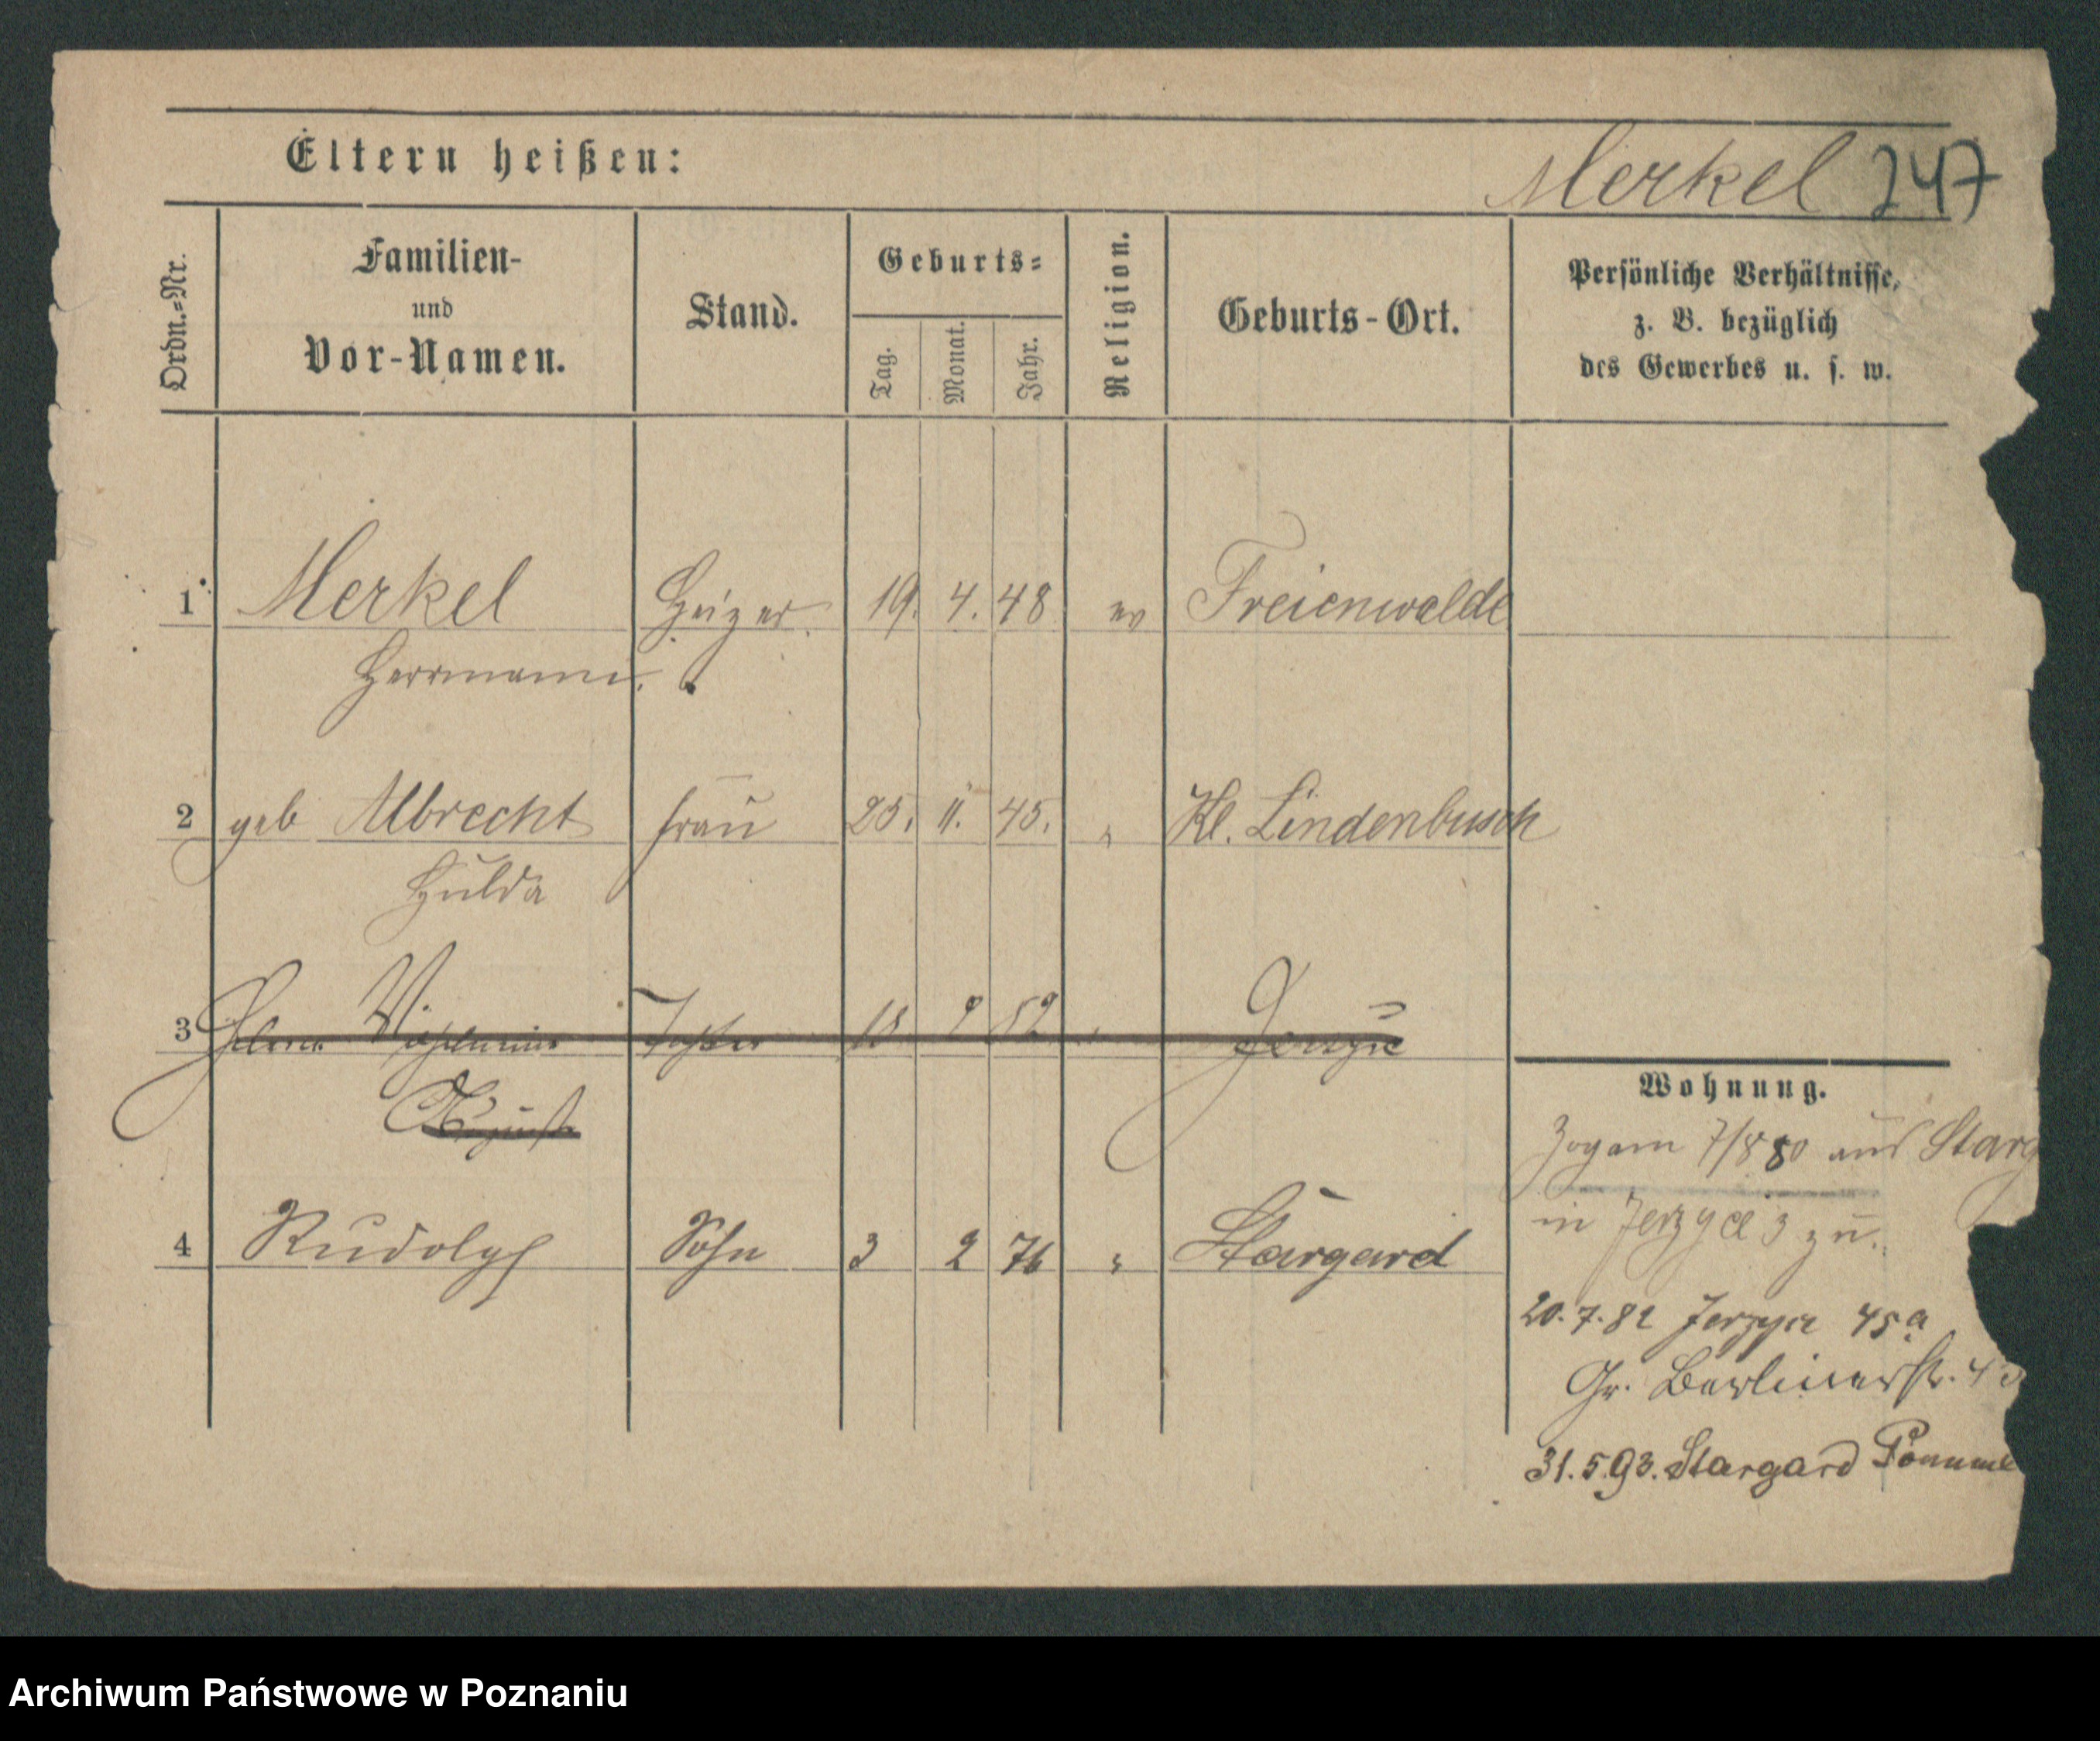 Eltern heißen:
Merkel 247
Ordn.=Nr.
Familien-
und
Vor-Namen.
Stand.
Geburts=
Tag.
Monat.
Jahr.
Religion.
Geburts-Ort.
Persönliche Verhältnisse,
z. B. bezüglich
des Gewerbes u. s. w.
1 Merkel Heizer. 19. 4. 48 ev Freienwalde
Herrmann.
2 geb Albrecht Frau 25. 11. 45. " Kl. Lindenbusch
Hulda
3 Wilhelmine Tochter 18 9 82
4 Rudolph Sohn 3 2 76 " Stargard
Wohnung.
Zog am 7/8 80 aus Starg
in Jerzyce 3 zu.
20.7.82 Jerzyce 45a
Gr. Berlinerstr. 4
31.5.93. Stargard Pomme
Archiwum Państwowe w Poznaniu